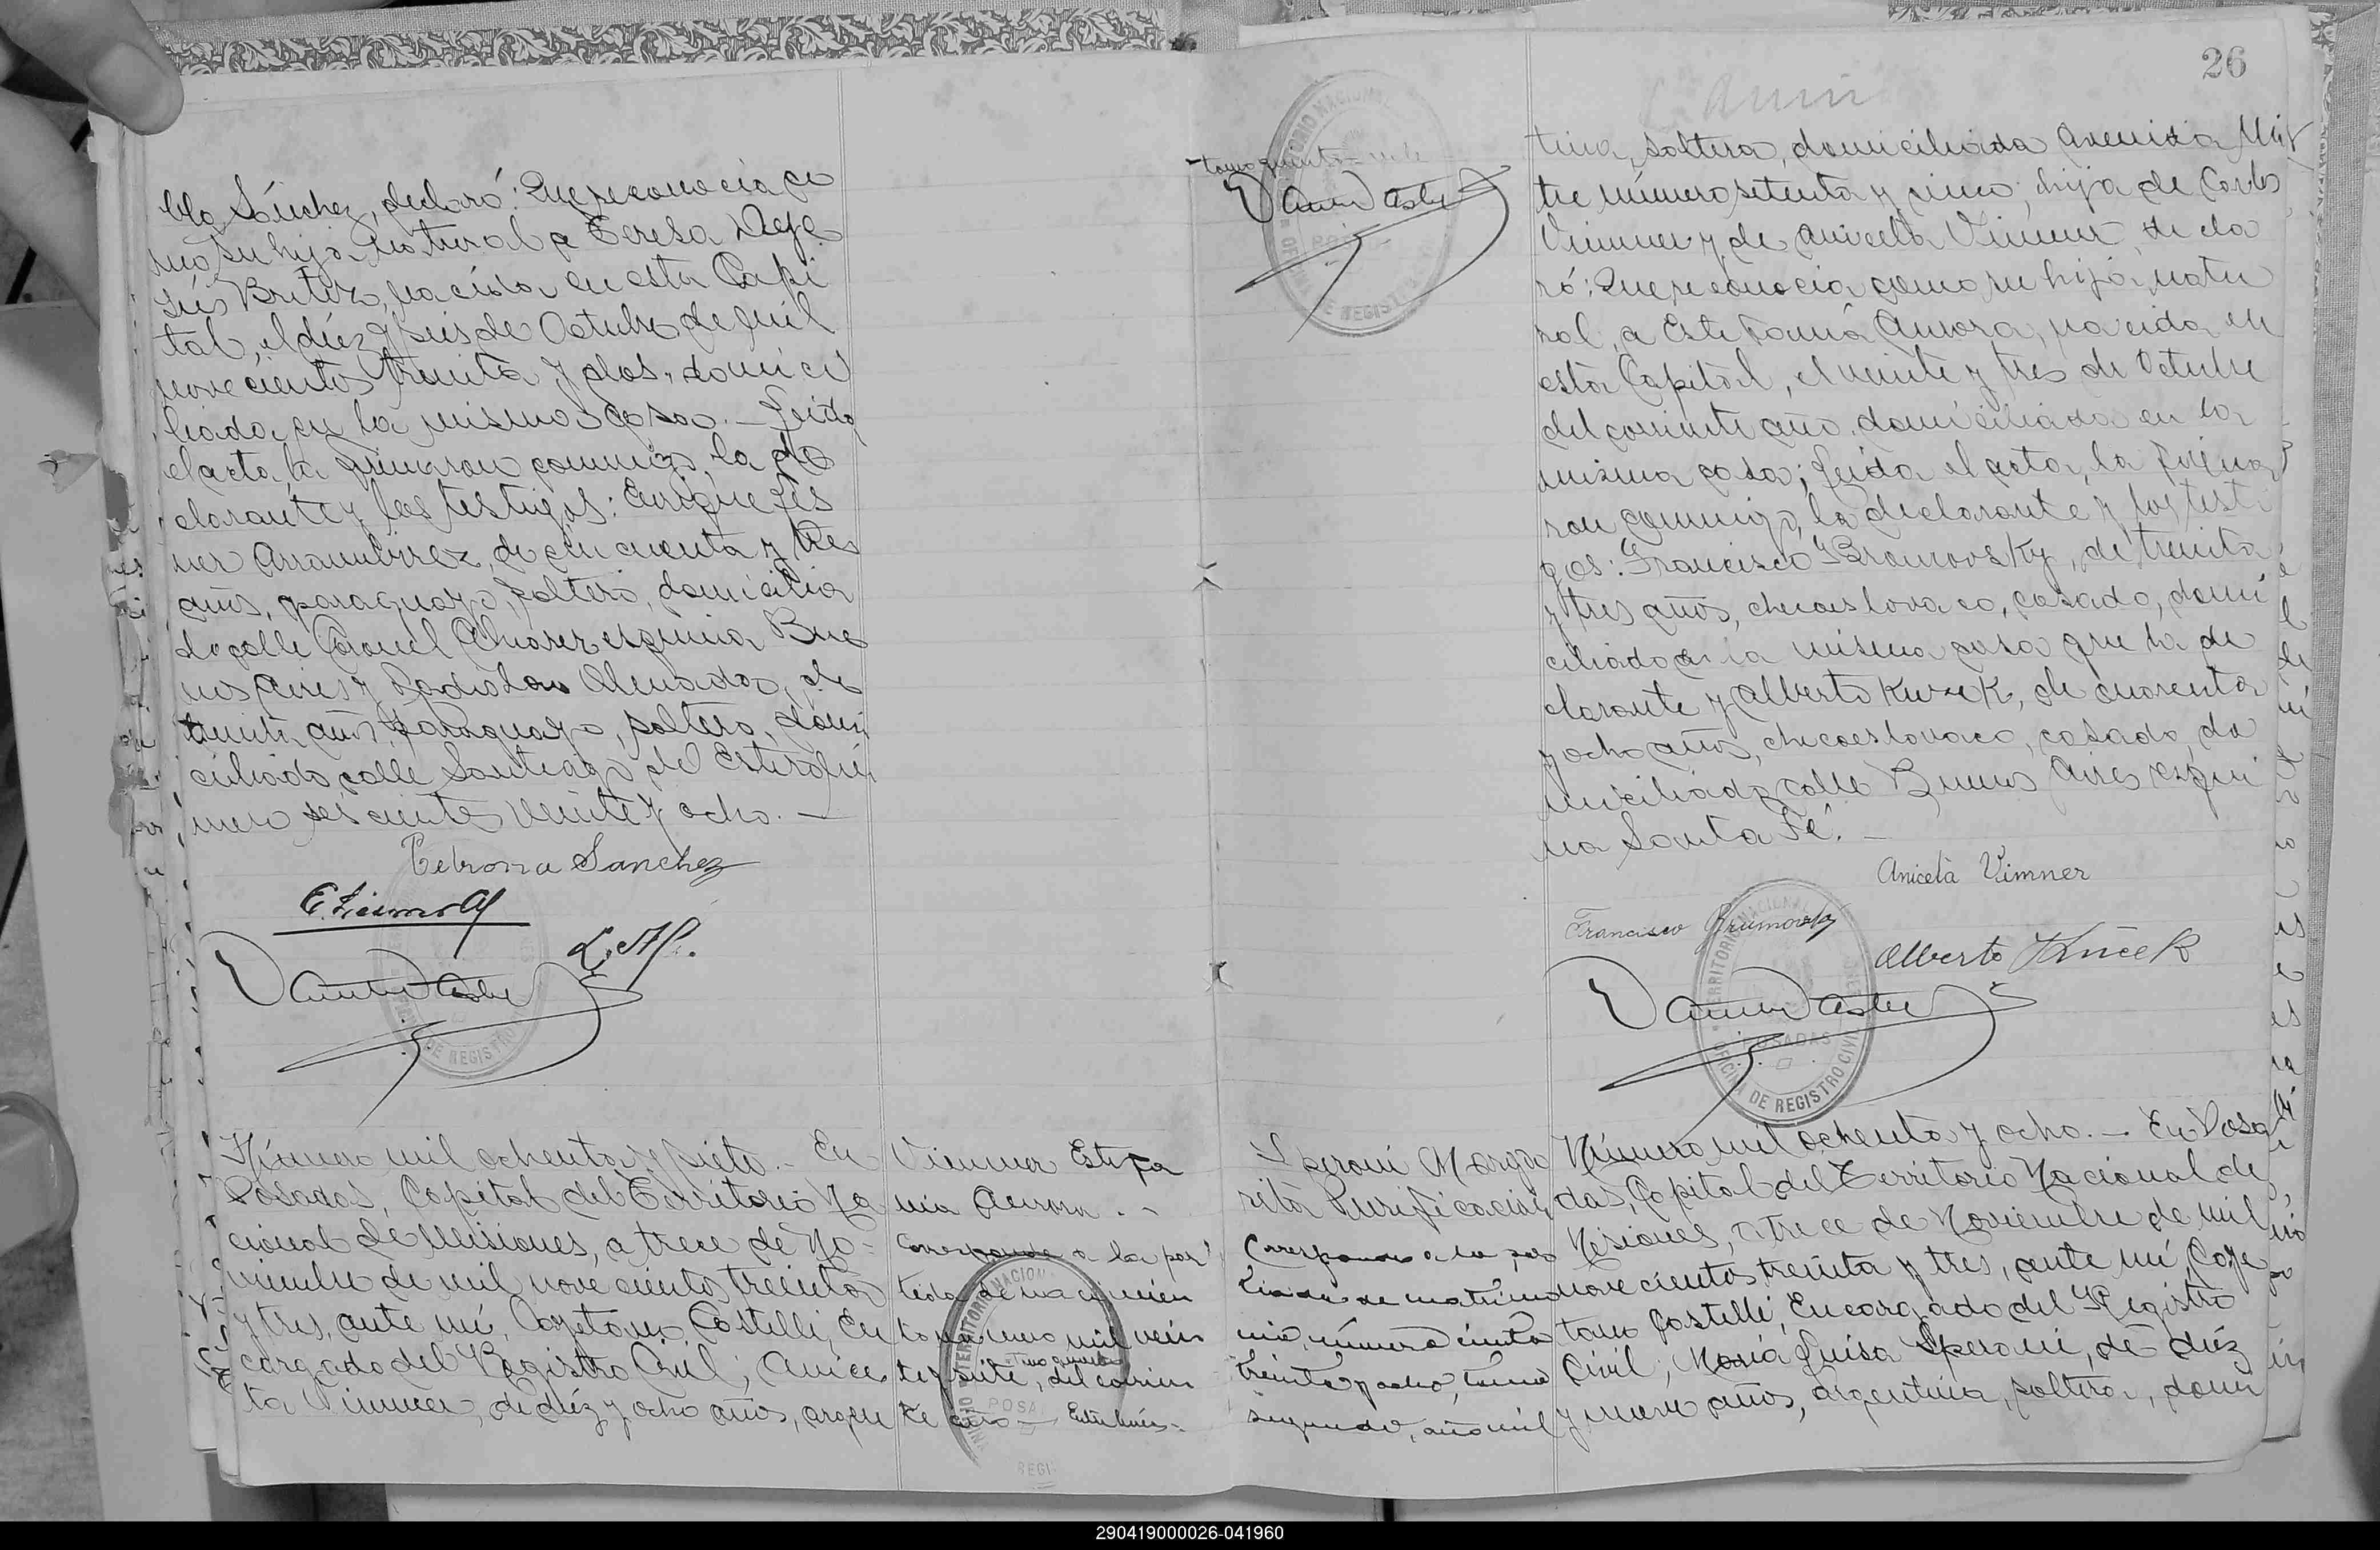 blo Sánchez, declaró: Que reconocia co
mo su hija natural a Teresa Deje
sús Britez, nacida en esta Capi
tal, el diez y seis de Octubre de mil
novecientos treinta y dos, domici
liada en la misma casa. — Leida
el acta, la firmaron conmigo, la de
clarante y los testigos: Enrique Les
ner Arrambirez, de cincuenta y tres
años, paraguayo, soltero, domicilia
do calle Coronel Alvarez esquina Bue
nos Aires y Ladislao Alvarado, de
treinta años, paraguayo, soltero, domi
ciliado calle Santiago del Estero nú
mero seiscientos veinte y ocho. —
Petrona Sanchez
Número mil ochenta y siete. — En
Posadas, Capital del Territorio Na
cional de Misiones, a trece de No-
viembre de mil novecientos treinta
y tres, ante mi, Cayetano Castelli, En
cargado del Registro Civil; Anice
ta Vimmer, de diez y ocho años, argen
Vimmer Estefa
nia Aurora. -
Corresponde a la par
tida de nacimien
to número mil vein
te y siete, del corrien
te año
26
tina, soltera, domiciliada Avenida Mi
tre número setenta y cinco; hija de Carlos
Vimmer y de Aniceta Vimmer, decla
ró: Que reconocia como su hija natu
ral, a Estefania Aurora, nacida en
esta Capital, el veinte y tres de Octubre
del corriente año, domiciliada en la
misma casa; leida el acta, la firma
ron conmigo, la declarante y los testi
gos: Francisco Bromovsky, de treinta
y tres años, checoeslovaco, casado, domi
ciliado en la misma casa que la de
clarante y Alberto Kucek, de cuarenta
y ocho años, checoeslovaco, casado, do
miciliado calle Buenos Aires esqui
na Santa Fé. —
Aniceta Vimner
Francisco Brumovsky
Alberto Kuček
TERRITORIO NACIONAL
POSADAS
OFICINA DE REGISTRO CIVIL
Speroni Marga
rita Purificación
Corresponde a la par
tida de matrimo
nio, número ciento
treinta y ocho, tomo
segundo, año mil
Número mil ochenta y ocho. — En Posa
das, Capital del Territorio Nacional de
Misiones, a trece de Noviembre de mil
novecientos treinta y tres, ante mi, Caye
tano Castelli, Encargado del Registro
Civil; María Luisa Speroni, de diez
y nueve años, argentina, soltera, domi
290419000026-041960